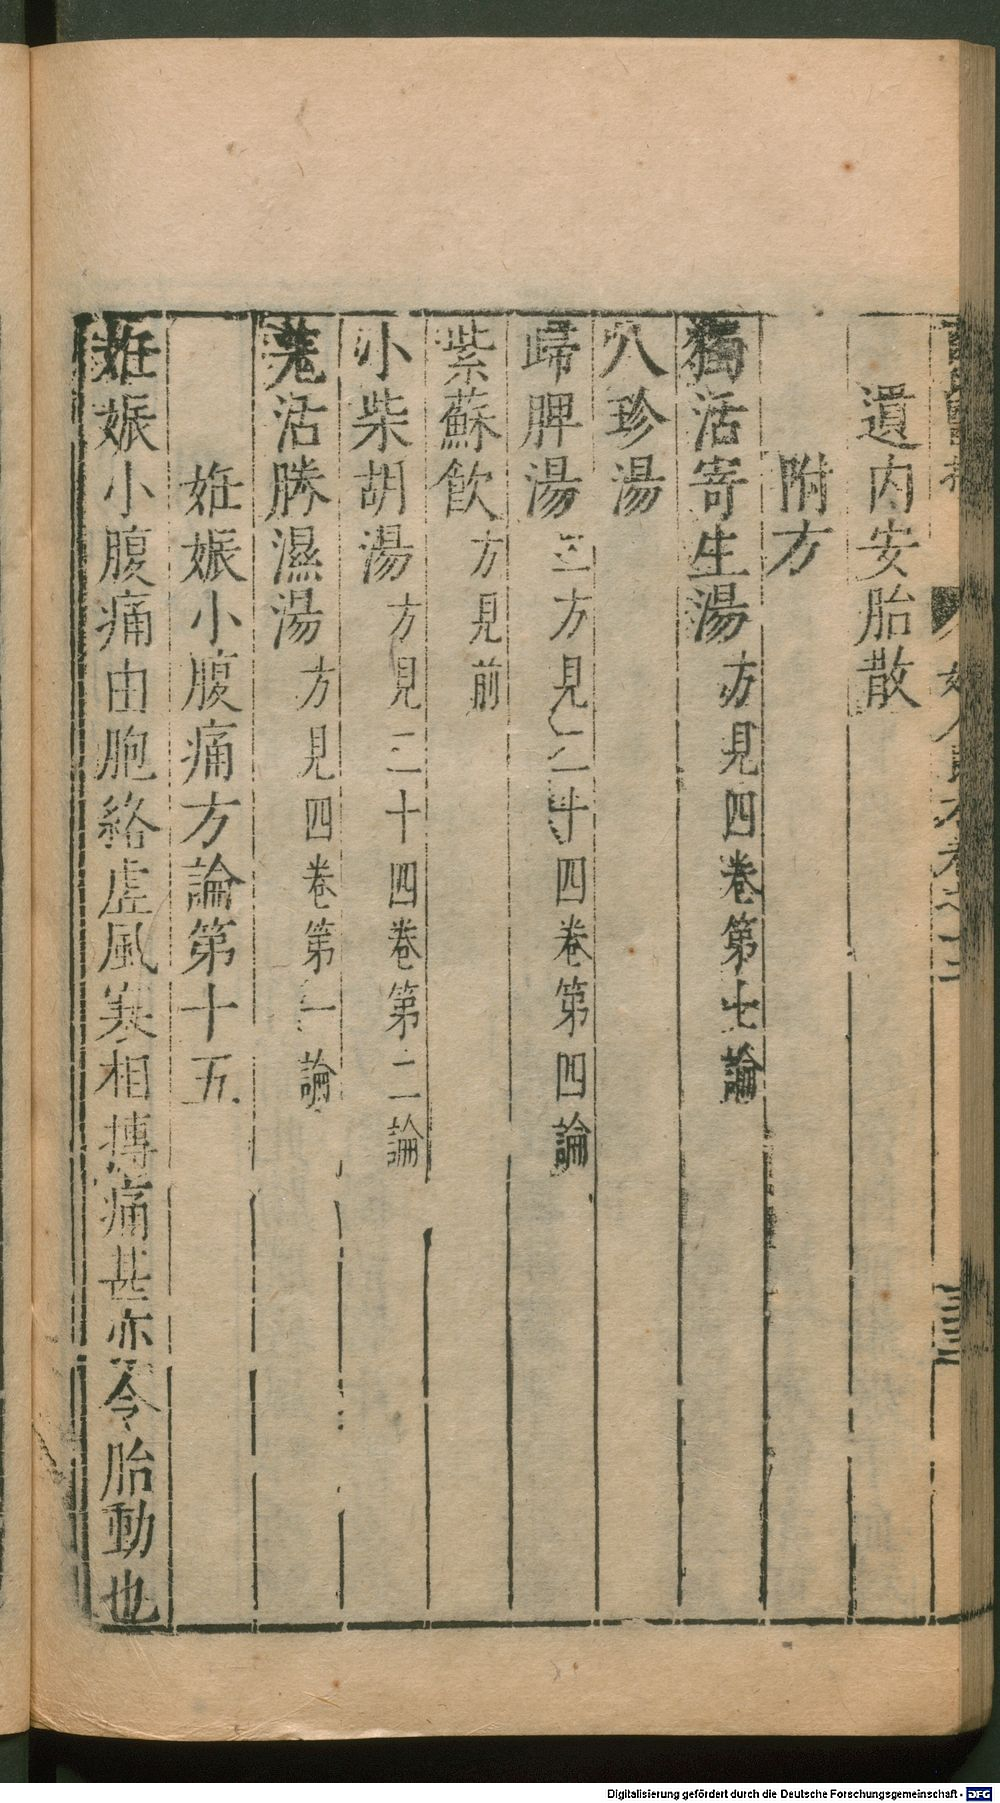 遺内安胎散
附方
獨活寄生湯方見四卷第七論
八珍湯
歸脾湯二方見二十四卷第四論
紫蘇飲方見前
小柴胡湯方見二十四卷第二論
羗活勝濕湯方見四卷第一論
姙娠小腹痛方論第十五
姙娠小腹痛由胞絡虛風寒相搏痛甚亦令胎動也
Digitalisierung gefördert durch die Deutsche Forschungsgemeinschaft - DFG